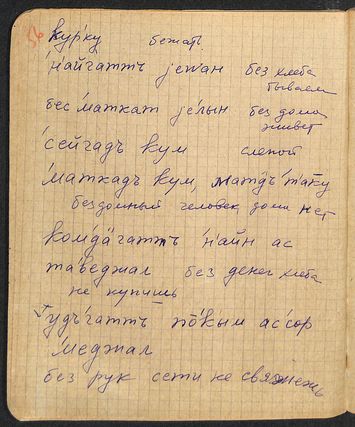 56
курку бежать
н'айгаттъ jетан без хлеба
бываем
бес маткат jелын без дома
живет
'сейгадъ кум слепой
'маткадъ кум, матдъ т'аку
бездомный человек дома нет
ком'дагаттъ н'айн ас
та'веджал без денег хлеба
не купишь
удъ'гаттъ по̄кым ас'сор
'меджал
без рук сети не свяжешь